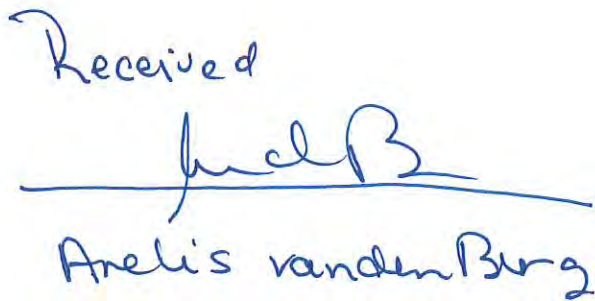 Received
Arelis vandenBurg